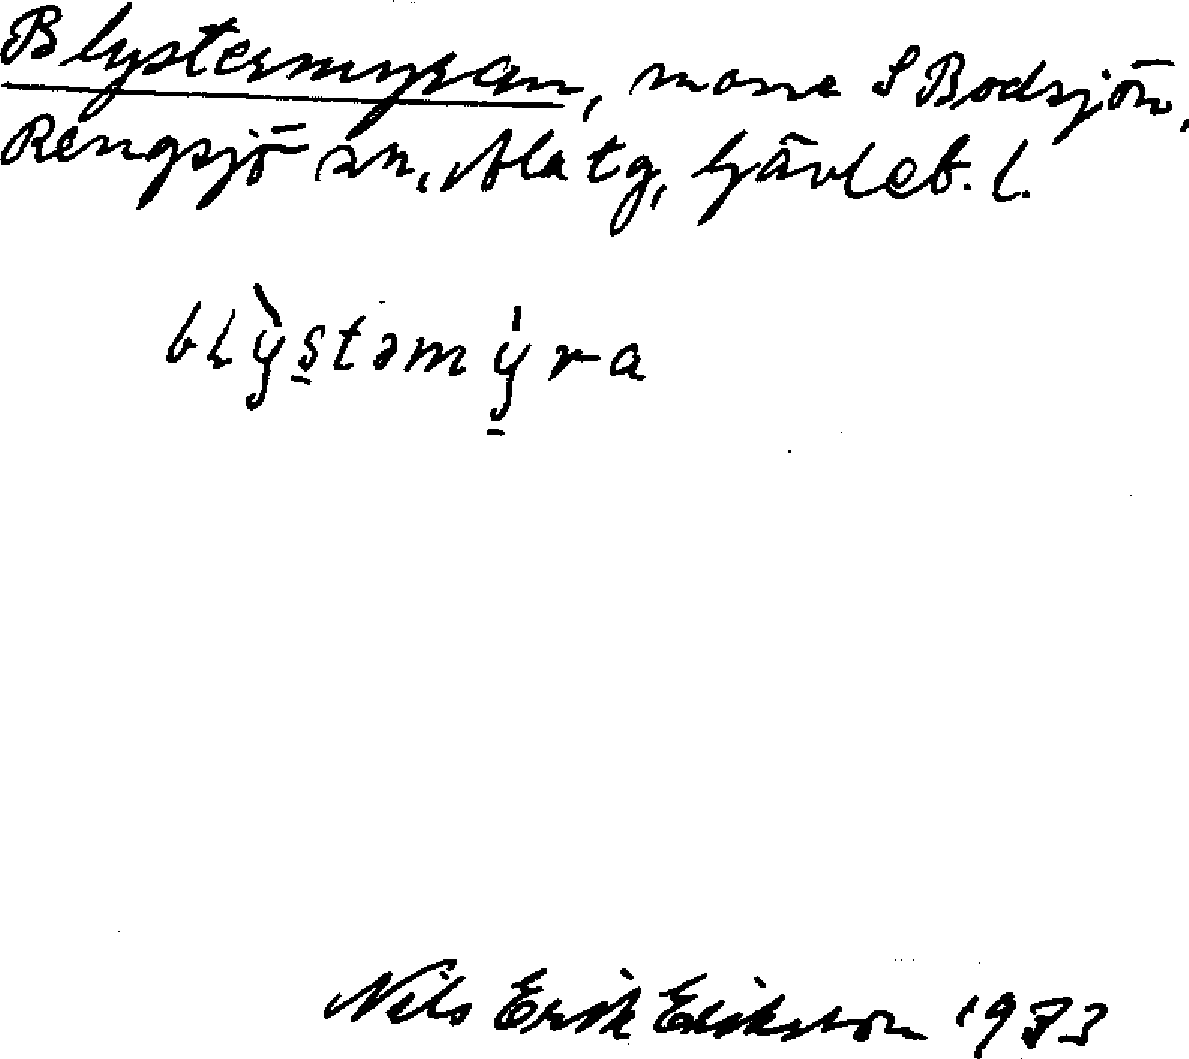 Blystermyran, mosse S Bodsjön,
Rengsjö sn, Ala tg, Gävleb. l.
blỳstəmýra
Nils Erik Eriksson 1973